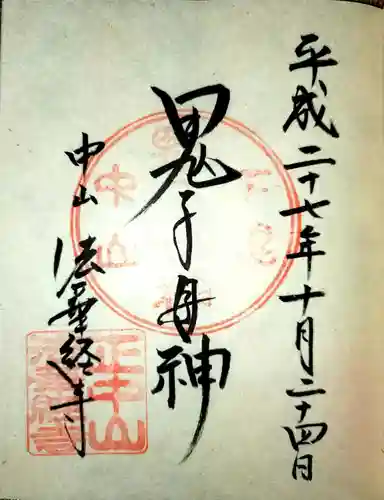 平成二十七年十月二十四日
鬼子母神
中山法華経寺